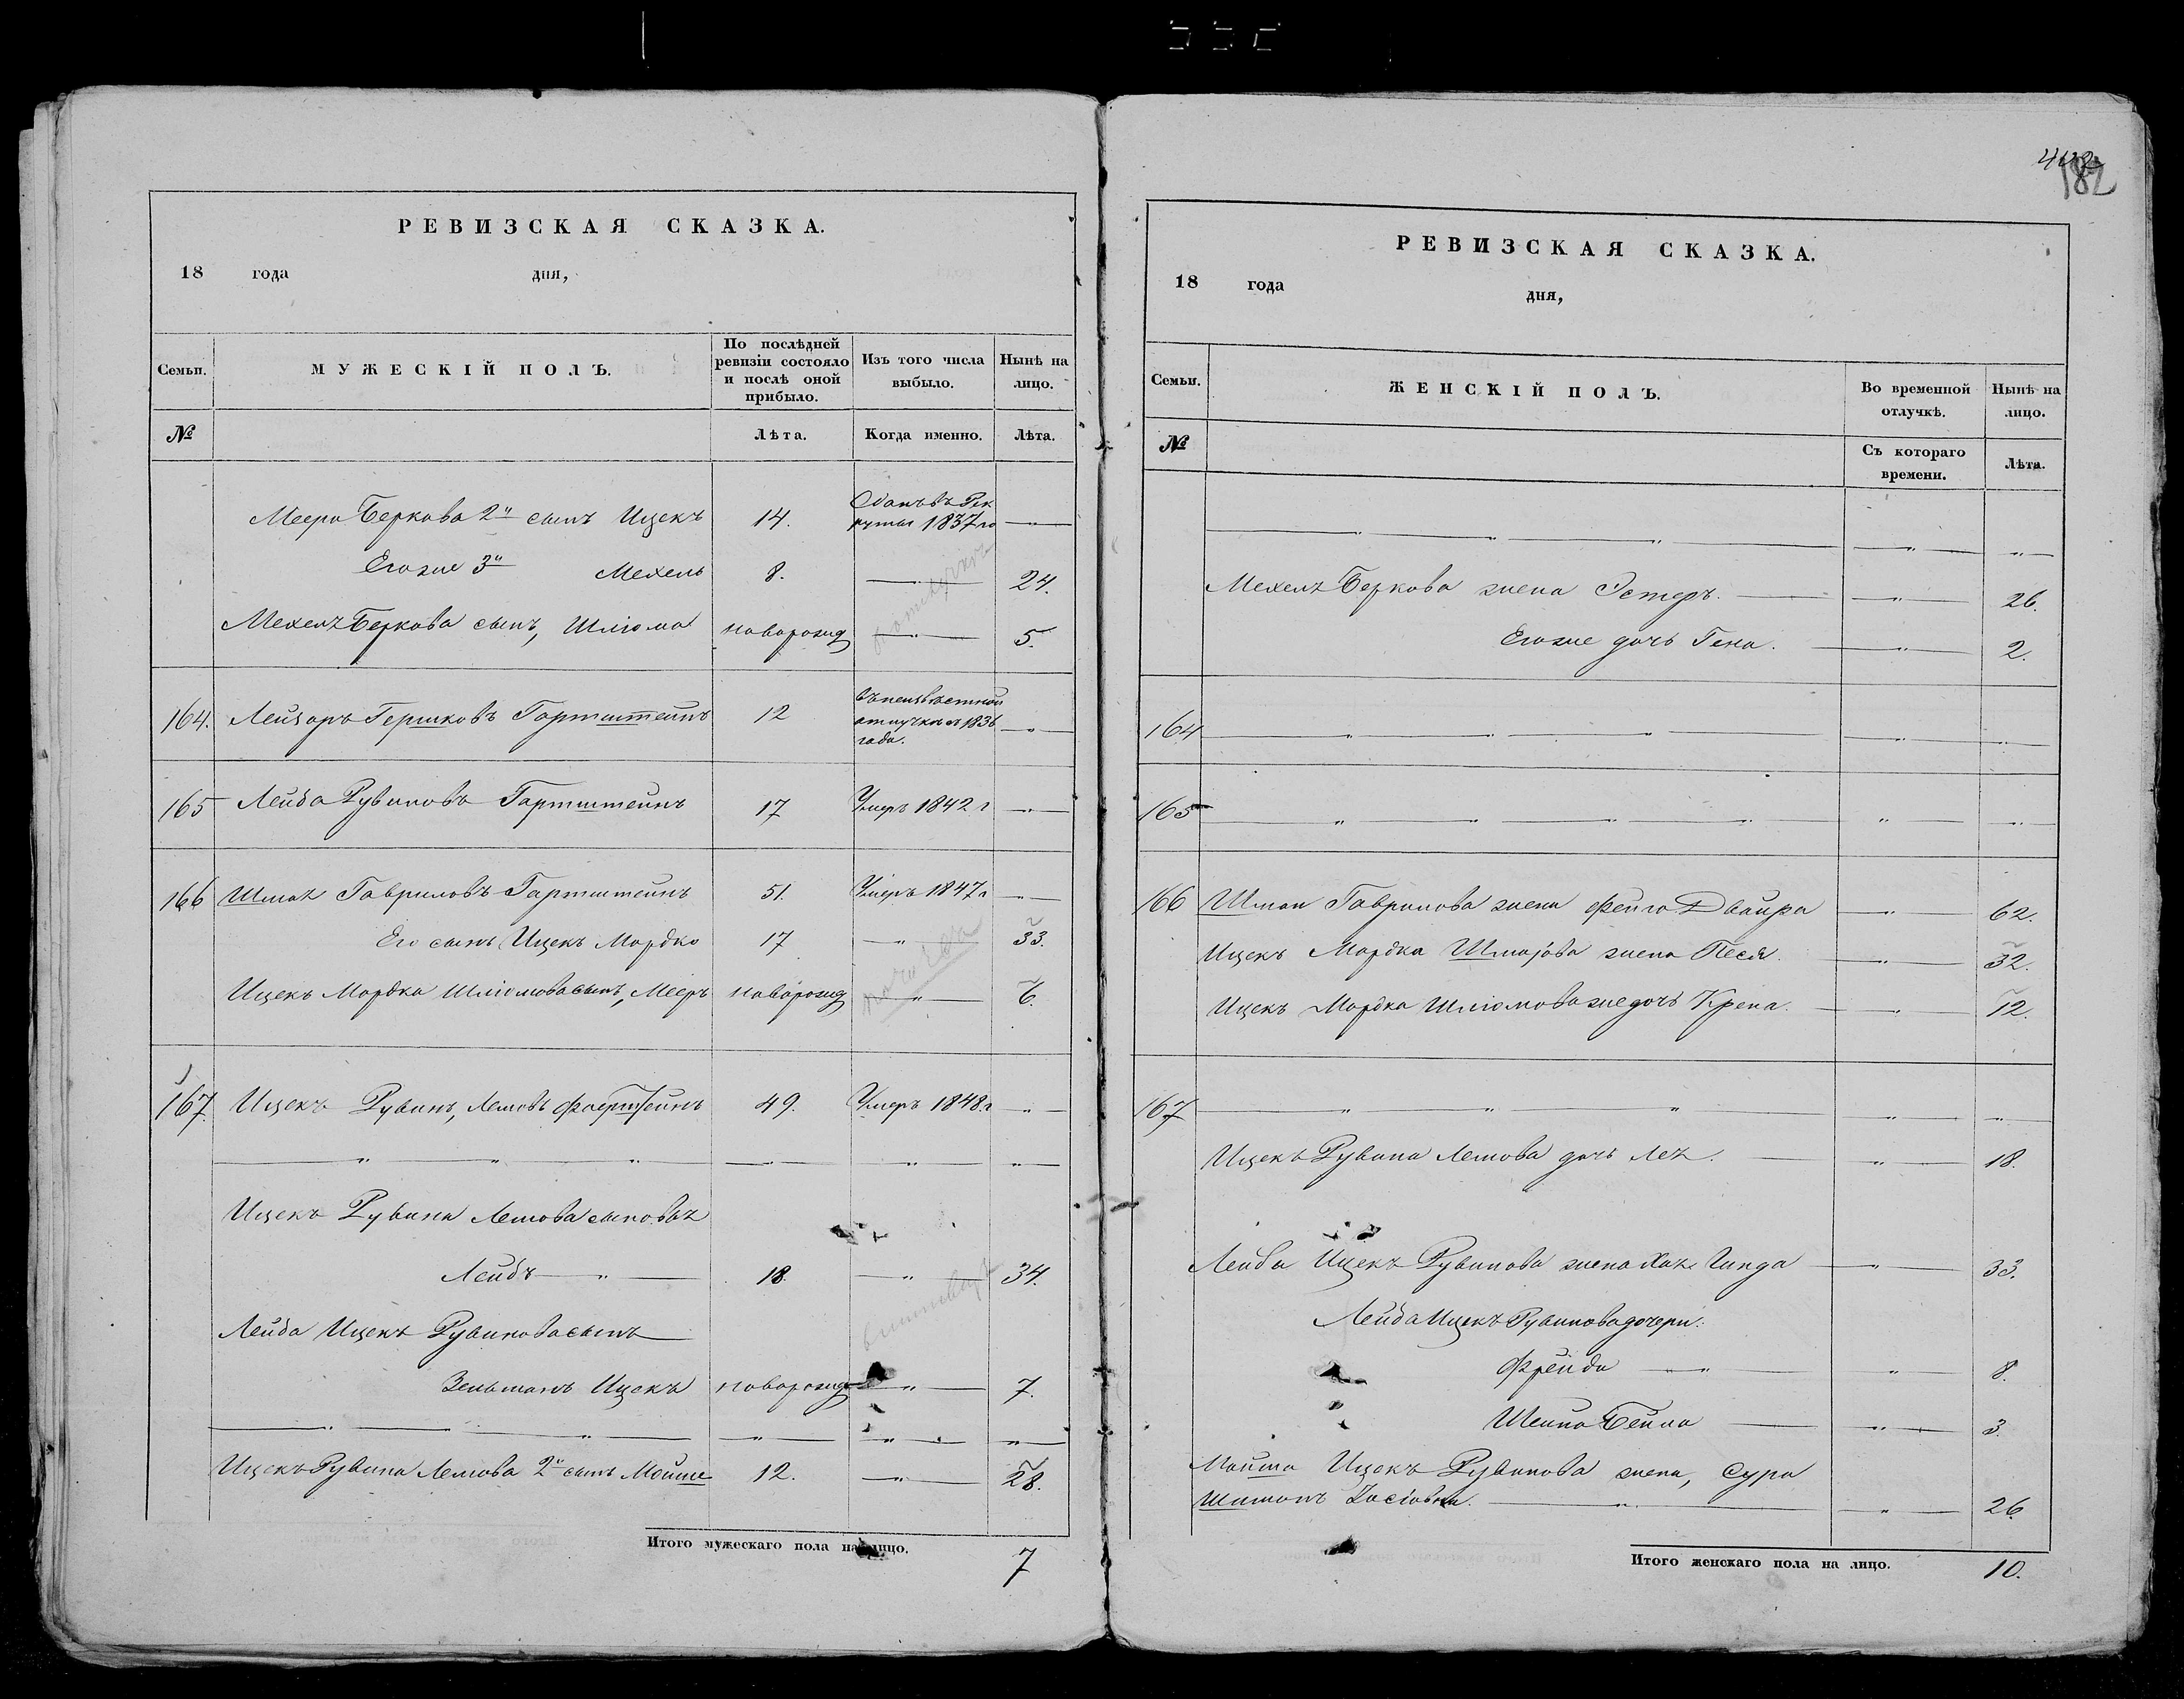 РЕВИЗСКАЯ СКАЗКА.
18 года дня,
Семьи. МУЖЕСКІЙ ПОЛЪ. По послѣдней ревизіи состояло и послѣ оной прибыло. Изъ того числа выбыло. Нынѣ на лицо.
№ Лѣта. Когда именно. Лѣта.
Меера Беркова 2й сынъ Ицекъ 14. Отданъ въ Рекруты 1837 го —
Его же 3й Мехель 8. — 24.
Мехеля Беркова сынъ, Шліома новорожд — 5.
164. Лейзоръ Гершковъ Гартштейнъ 12 въ неизвѣстной отлучкѣ съ 1836 года. —
165 Лейба Рувиновъ Гартштейнъ 17 Умеръ 1842 г —
166 Шмая Гавриловъ Гартштейнъ 51. Умеръ 1847 г —
Его сынъ Ицекъ Мордко 17 — 33.
Ицекъ Мордка Шліомова сынъ, Мееръ новорожд — 6.
167. Ицекъ Рувинъ, Лемовъ 49. Умеръ 1848 г —
Ицекъ Рувина Лемова сыновья
Лейбъ 18. — 34.
Лейба Ицекъ Рувинова сынъ
Зельманъ Ицекъ новорожд — 7.
Ицекъ Рувина Лемова 2й сынъ Мойше 12. — 28.
Итого мужескаго пола на лицо. 7
182
РЕВИЗСКАЯ СКАЗКА.
18 года дня,
Семьи. ЖЕНСКІЙ ПОЛЪ. Во временной отлучкѣ. Нынѣ на лицо.
№ Съ котораго времени. Лѣта.
Мехеля Беркова жена Эстеръ — 26.
Его же дочь Гена. — 2.
164
165
166 Шмаи Гаврилова жена Фейга Двайра — 62.
Ицекъ Мордка Шмаіова жена Песя. — 32.
Ицекъ Мордка Шліомова же дочь Крена. — 12.
167
Ицекъ Рувина Лемова дочь Лея. — 18.
Лейба Ицекъ Рувинова жена Хая Гинда — 33.
Лейба Ицекъ Рувинова дочери:
Фрейда — 8.
Шейна Бейла — 3.
Мойша Ицекъ Рувинова жена, Сура
Шимонъ Іосіовна. — 26.
Итого женскаго пола на лицо. 10.